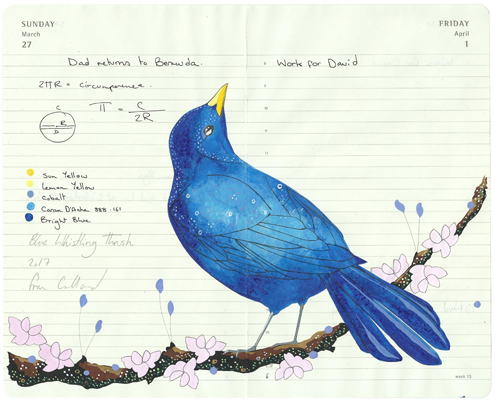 SUNDAY
March
27
FRIDAY
April
1
Dad returns to Bermuda.
Work for David
2πR = circumference.
π = C
2R
C
R
D
Sun Yellow
Lemon Yellow
Cobalt
Caran D'Ache 888.161
Bright Blue
Blue Whistling Thrush
2017
week 13